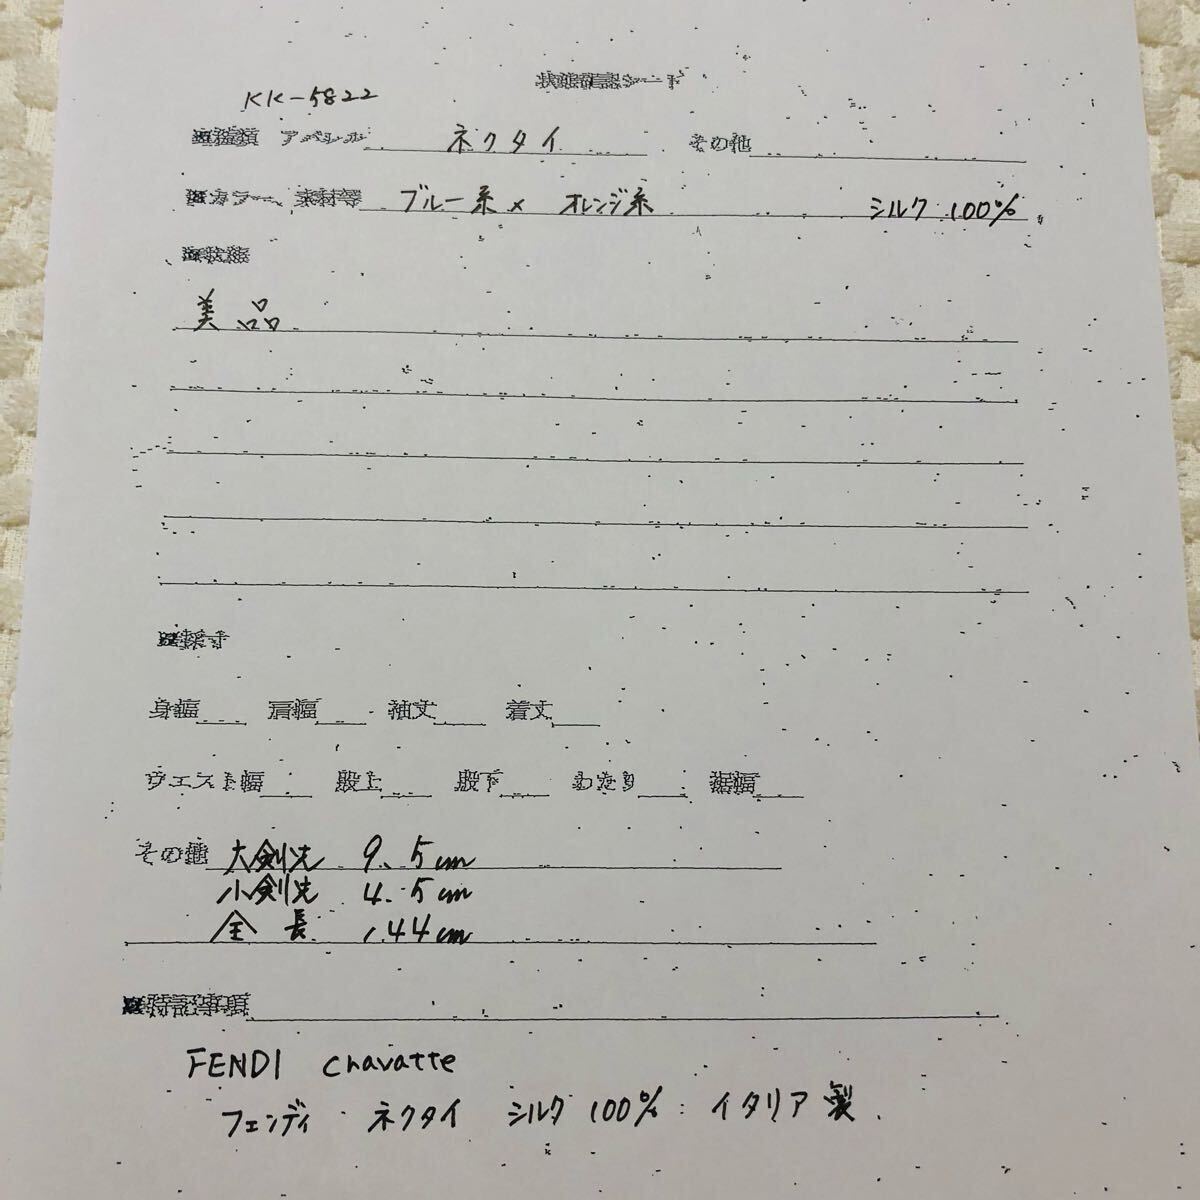 状態確認シート
KK-5822
■種類 アパレル ネクタイ その他
■カラー、素材等 ブルー系 × オレンジ系 シルク 100%
■状態
美品
■採寸
身幅 肩幅 袖丈 着丈
ウエスト幅 股上 股下 わたり 裾幅
その他 大剣先 9.5cm
小剣先 4.5cm
全長 144cm
■特記事項
FENDI cravatte
フェンディ ネクタイ シルク 100% イタリア製